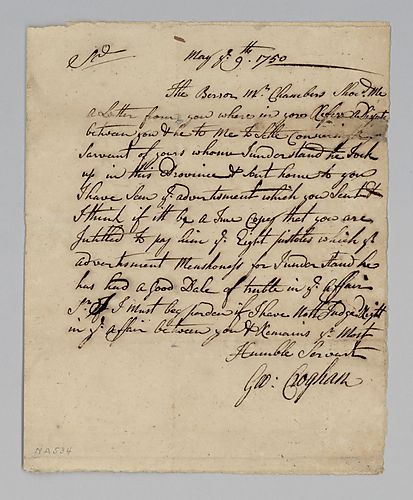 Sr May ye 9th 1750
The Berror Mr Chambers Shoed Me
a Letter from you where in you Refere a Dispute
between you & he to Me to Setle Conserning a
Servant of yours whome I understand he Took
up in this Province & Sent home to you
I have Seen ye advertsment which you Sent &
I think if itt be a True Copey that you are
Intitled to pay him ye Eight pistoles which ye
advertsment Menshones for I under Stand he
has had a Good Dale of truble in ye affair
Sr I Must beg parden if I have Nott Judged Right
in ye affair between you & Remains yr Most
Humble Servant
Geo: Croghan
MA534